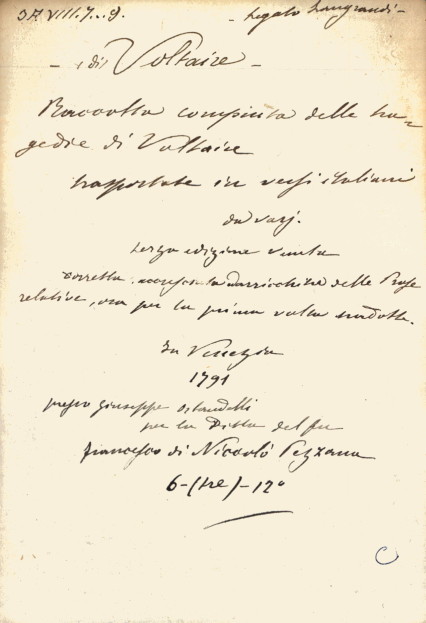 37. VIII. 7. - 9. - Legato Zangrandi -
- (di) Voltaire -
Raccolta compiuta delle tra=
gedie di Voltaire
trasportate in versi italiani
da varj.
terza edizione veneta
corretta, accresciuta arricchita delle Prose
relative, ora per la prima volta tradotte.
In Venezia
1791
presso Giuseppe Orlandelli
per la Ditta del fu
Francesco di Niccolò Pezzana
6-(tre)-12°
C